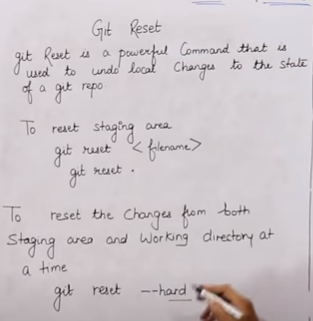 Git Reset
git Reset is a powerful Command that is
used to undo local Changes to the state
of a git repo
To reset staging area
git reset <filename>
git reset .
To reset the Changes from both
Staging area and Working directory at
a time
git reset --hard